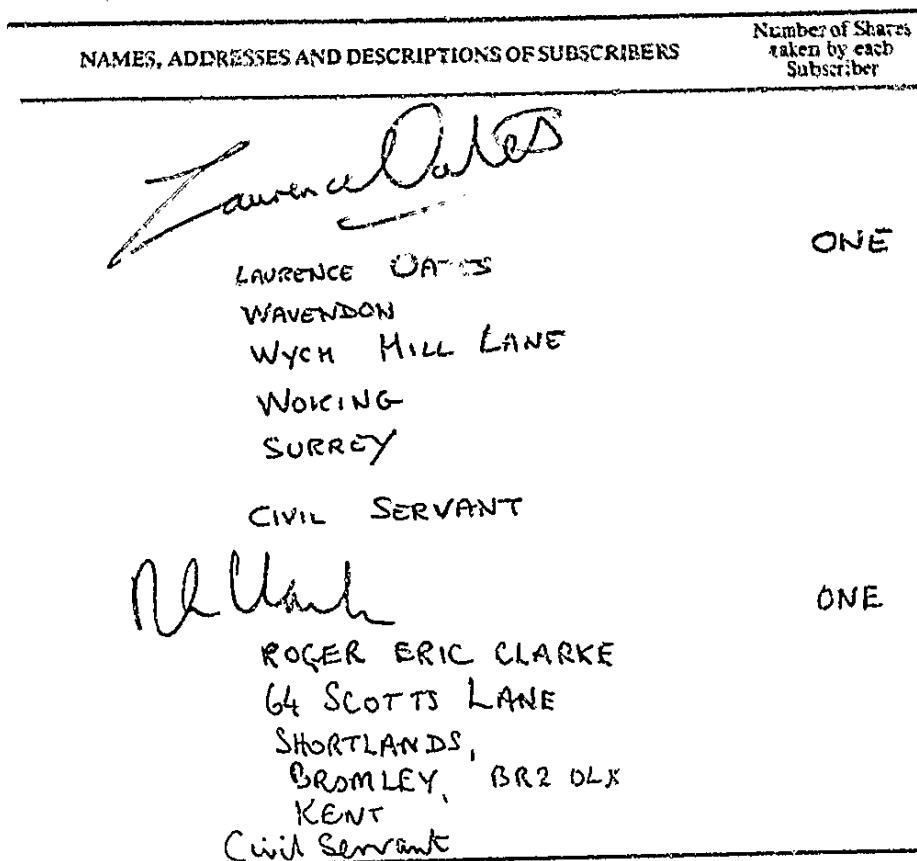 NAMES, ADDRESSES AND DESCRIPTIONS OF SUBSCRIBERS
Number of Shares
taken by each
Subscriber
Laurence Oates
ONE
LAURENCE OATES
WAVENDON
WYCH HILL LANE
WOKING
SURREY
CIVIL SERVANT
ONE
ROGER ERIC CLARKE
64 SCOTTS LANE
SHORTLANDS,
BROMLEY, BR2 0LX
KENT
Civil Servant